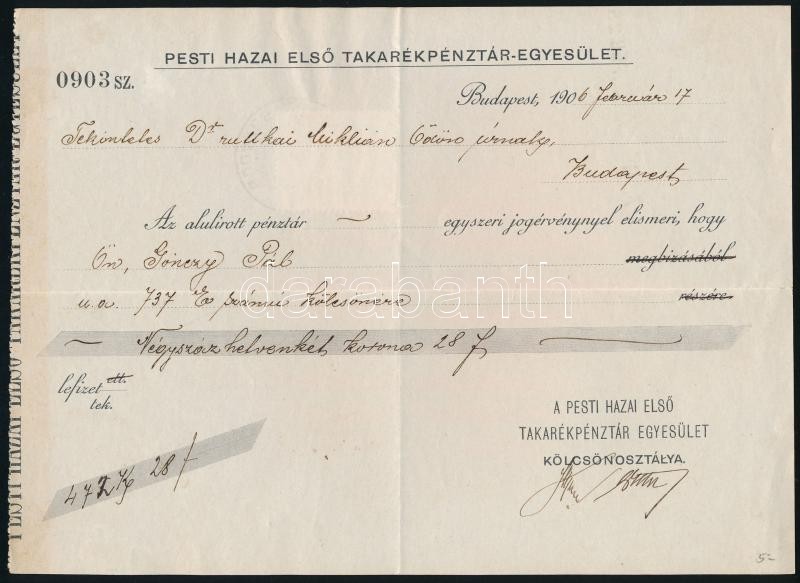 PESTI HAZAI ELSŐ TAKARÉKPÉNZTÁR-EGYESÜLET.
0903 SZ.
Budapest, 1906 február 17
Tekintetes Dr ruttkai Miklián Ödön úrnak,
Budapest
Az alulirott pénztár — egyszeri jogérvénynyel elismeri, hogy
Ön, Gönczy Pál megbizásából
u.a. 737 E számú kölcsönére részére
— Négyszázhetvenkét korona 28 f —
lefizet ett.
tek.
472 K 28 f
A PESTI HAZAI ELSŐ
TAKARÉKPÉNZTÁR EGYESÜLET
KÖLCSÖNOSZTÁLYA.
darabanth
5-